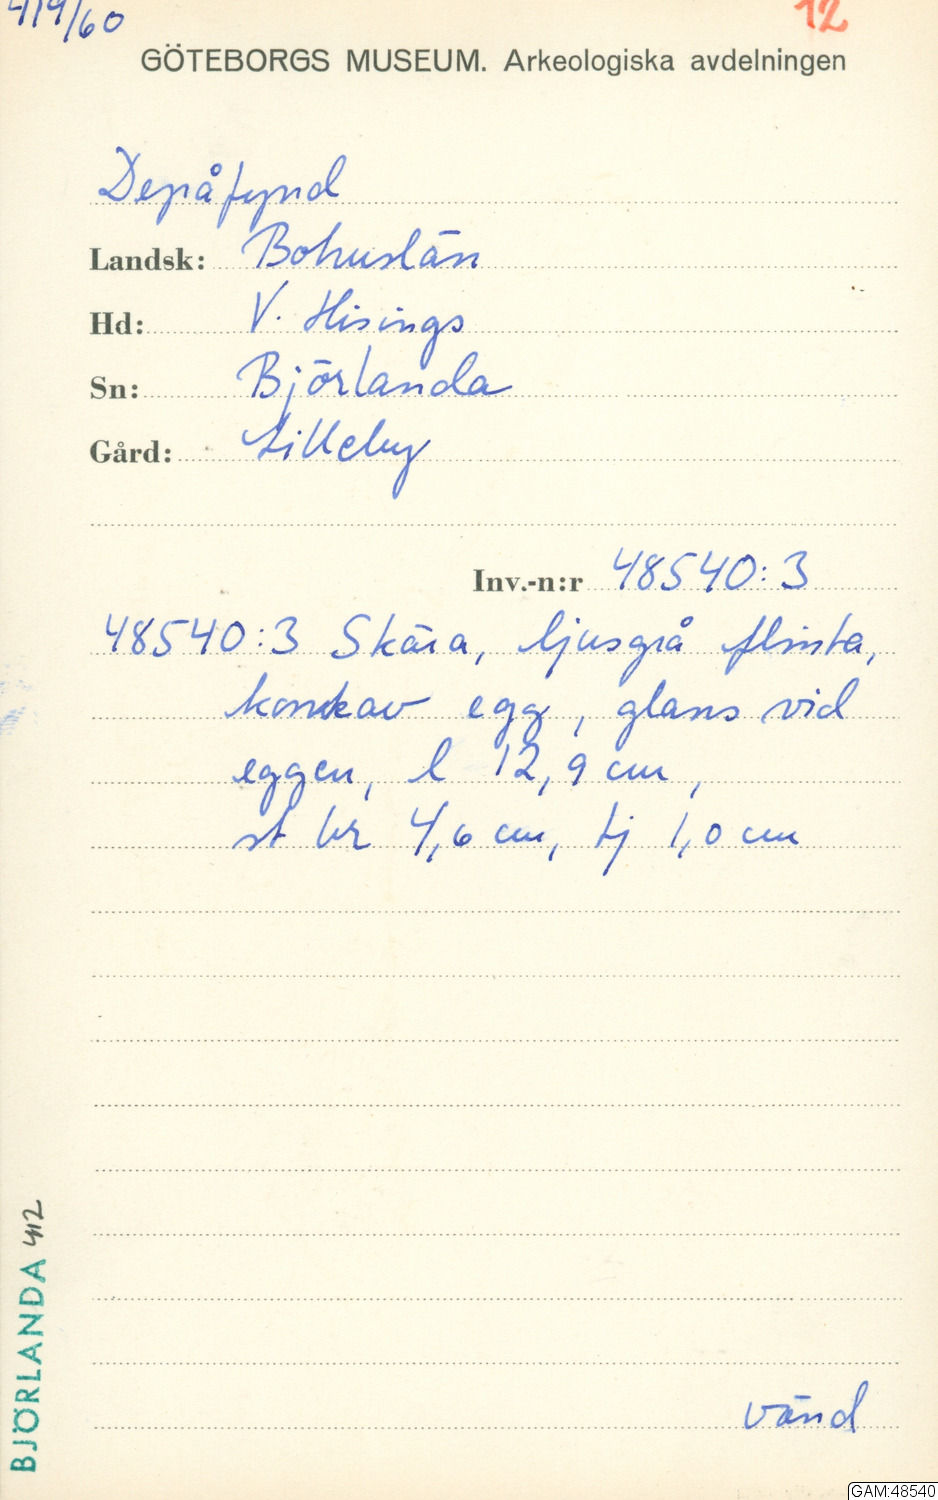 419/60
12
GÖTEBORGS MUSEUM. Arkeologiska avdelningen
Depåfynd
Landsk: Bohuslän
Hd: V. Hisings
Sn: Björlanda
Gård: Lilleby
Inv.-n:r 48540:3
48540:3 Skära, ljusgrå flinta,
konkav egg, glans vid
eggen, l 12,9 cm,
st br 4,6 cm, tj 1,0 cm
BJÖRLANDA 412
vänd
GAM:48540